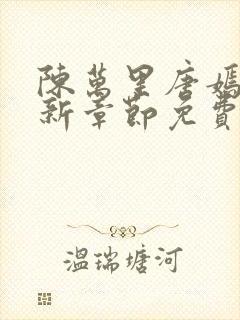 陳萬里唐嫣
新章節免費
溫瑞塘河